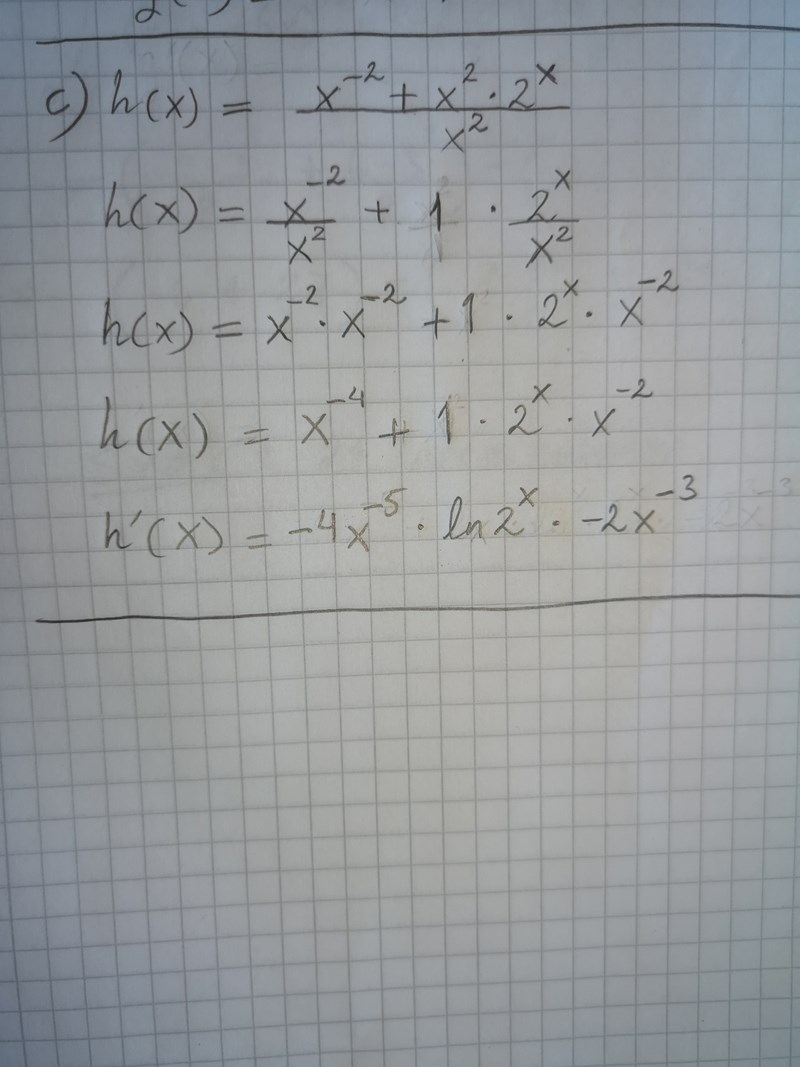 c) h(x) = (x⁻² + x² · 2ˣ) / x²
h(x) = x⁻²/x² + 1 · 2ˣ/x²
h(x) = x⁻² · x⁻² + 1 · 2ˣ · x⁻²
h(x) = x⁻⁴ + 1 · 2ˣ · x⁻²
h'(x) = -4x⁻⁵ · ln2ˣ · -2x⁻³